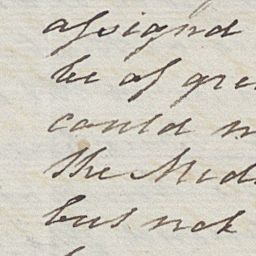 assignd
be of gre
could n
the Med
but not